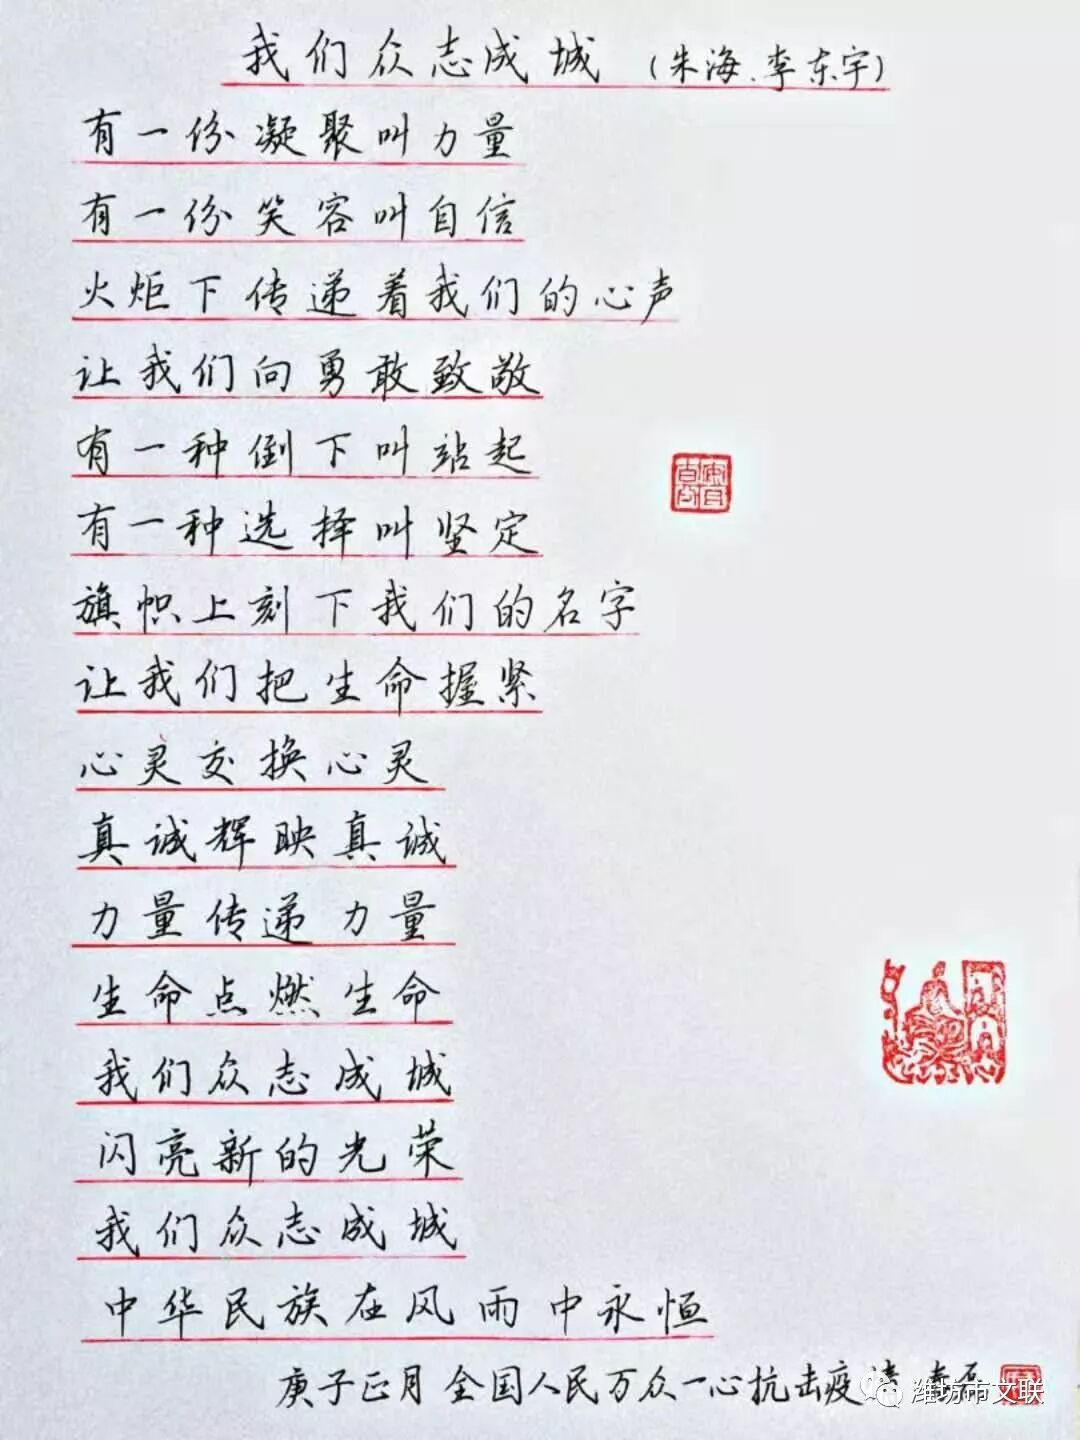 我们众志成城 (朱海、李东宇)
有一份凝聚叫力量
有一份笑容叫自信
火炬下传递着我们的心声
让我们向勇敢致敬
有一种倒下叫站起
有一种选择叫坚定
旗帜上刻下我们的名字
让我们把生命握紧
心灵交换心灵
真诚辉映真诚
力量传递力量
生命点燃生命
我们众志成城
闪亮新的光荣
我们众志成城
中华民族在风雨中永恒
庚子正月全国人民万众一心抗击疫
潍坊市文联